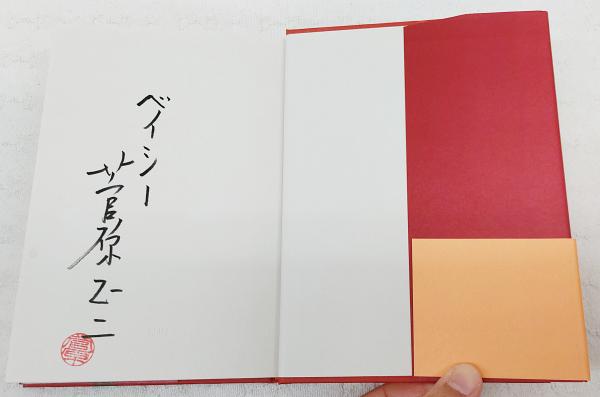 ベイシー
菅原正二